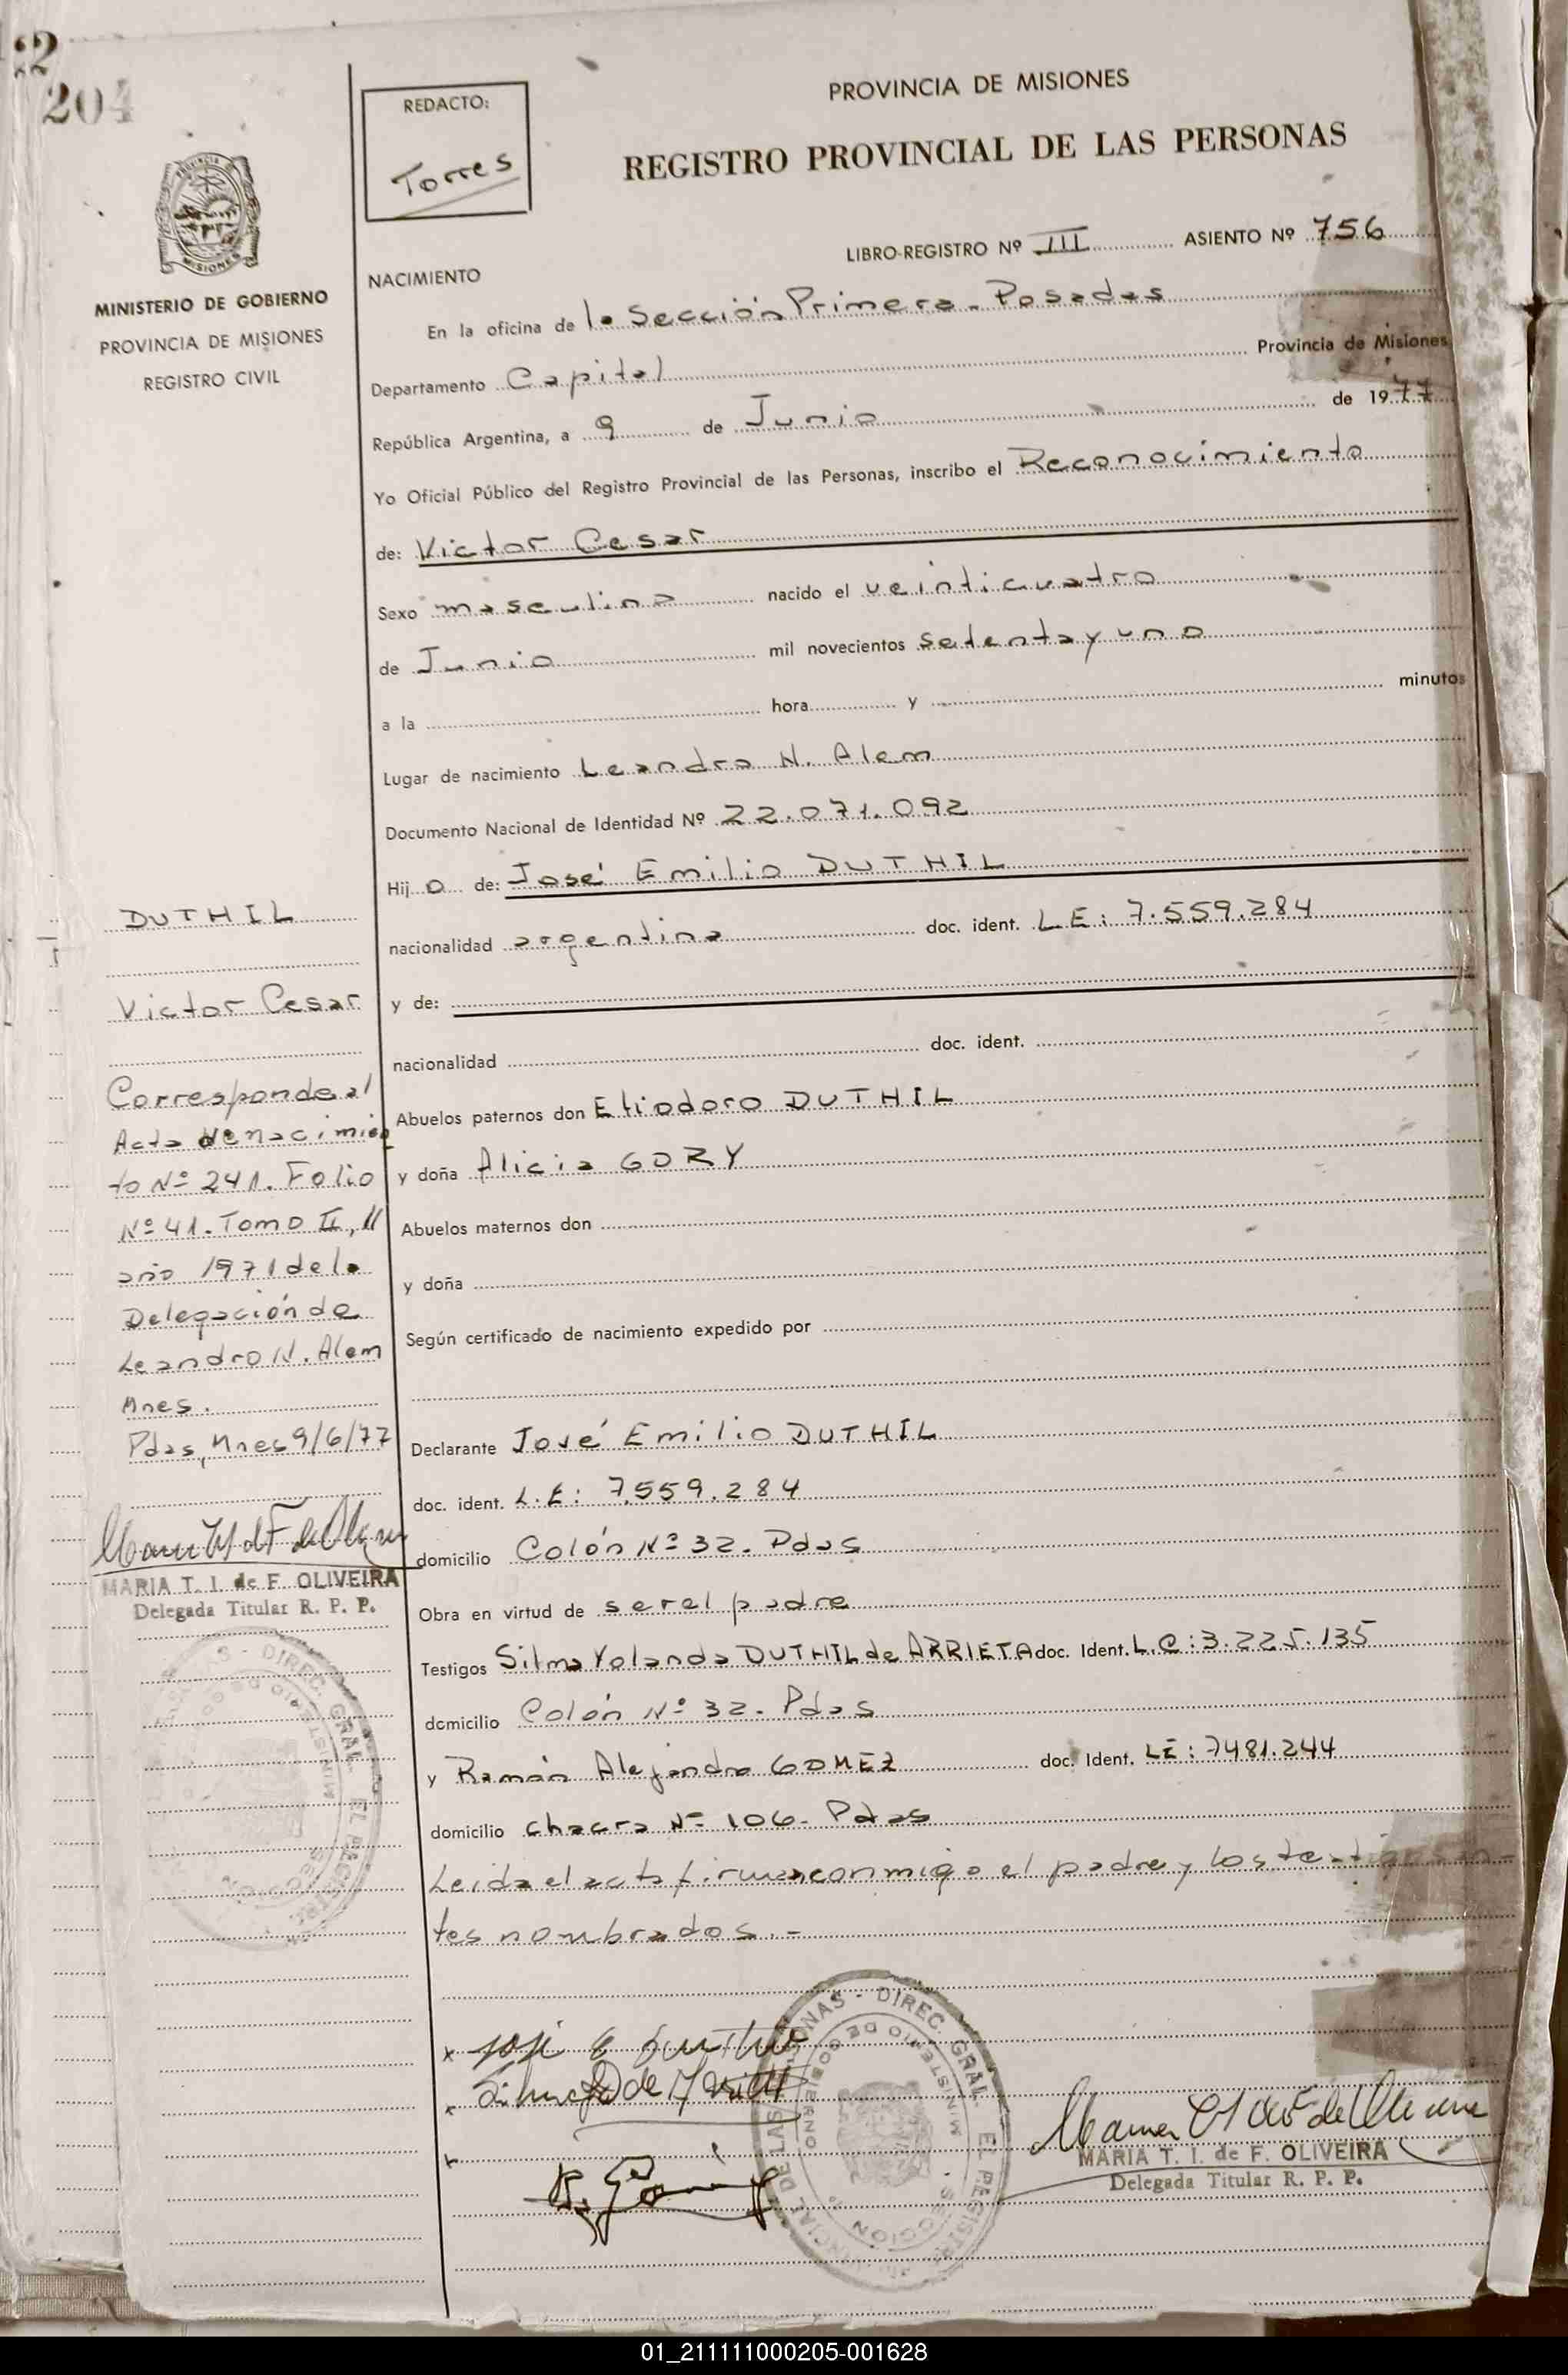 204
REDACTO:
Torres
PROVINCIA DE MISIONES
REGISTRO PROVINCIAL DE LAS PERSONAS
LIBRO-REGISTRO Nº III ASIENTO Nº 756
MISIONES
MINISTERIO DE GOBIERNO
PROVINCIA DE MISIONES
REGISTRO CIVIL
NACIMIENTO
En la oficina de la Sección Primera - Posadas
Departamento Capital Provincia de Misiones
República Argentina, a 9 de Junio de 1977
Yo Oficial Público del Registro Provincial de las Personas, inscribo el Reconocimiento
de: Victor Cesar
Sexo masculino nacido el veinticuatro
de Junio mil novecientos setenta y uno
a la hora y minutos
Lugar de nacimiento Leandro N. Alem
Documento Nacional de Identidad Nº 22.071.092
Hijo de: José Emilio DUTHIL
nacionalidad argentina doc. ident. LE: 7.559.284
y de:
nacionalidad doc. ident.
Abuelos paternos don Eliodoro DUTHIL
y doña Alicia GORY
Abuelos maternos don
y doña
Según certificado de nacimiento expedido por
Declarante José Emilio DUTHIL
doc. ident. L.E: 7.559.284
domicilio Colón Nº 32. Pdas
Obra en virtud de ser el padre
Testigos Silma Yolanda DUTHIL de ARRIETA doc. Ident. L.C: 3.225.135
domicilio Colón Nº 32. Pdas
y Ramón Alejandro GOMEZ doc. Ident. LE: 7481.244
domicilio chacra Nº 106. Pdas
Leida el acta firman conmigo el padre y los testigos an-
tes nombrados.-
DUTHIL
Victor Cesar
Corresponde al
Acta de nacimien
to Nº 241. Folio
Nº 41. Tomo II, //
año 1971 de la
Delegación de
Leandro N. Alem
Mnes.
Pdas, Mnes 9/6/77
MARIA T. I. de F. OLIVEIRA
Delegada Titular R. P. P.
DIREC. GRAL.
MINISTERIO DE GO
José E Duthil
R. Gomez
DIREC. GRAL. EL REGISTR
MINISTERIO DE GOBIERNO
SECCION
MARIA T. I. de F. OLIVEIRA
Delegada Titular R. P. P.
01_211111000205-001628